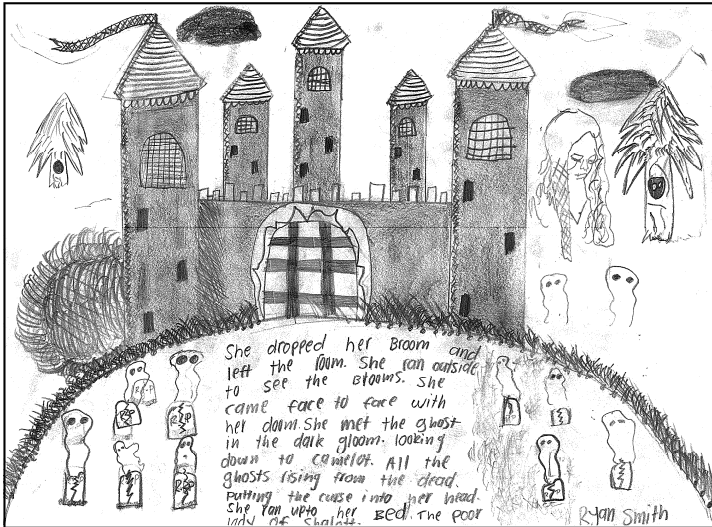 She dropped her Broom and
left the room. She ran outside
to see the Blooms. She
came face to face with
her doom. She met the ghost
in the dark gloom. looking
down to camelot. All the
ghosts rising from the dead.
putting the curse into her head.
She ran upto her Bed. The poor
lady Of Shalott.
RIP
RIP
RIP
RIP
RIP
Ryan Smith